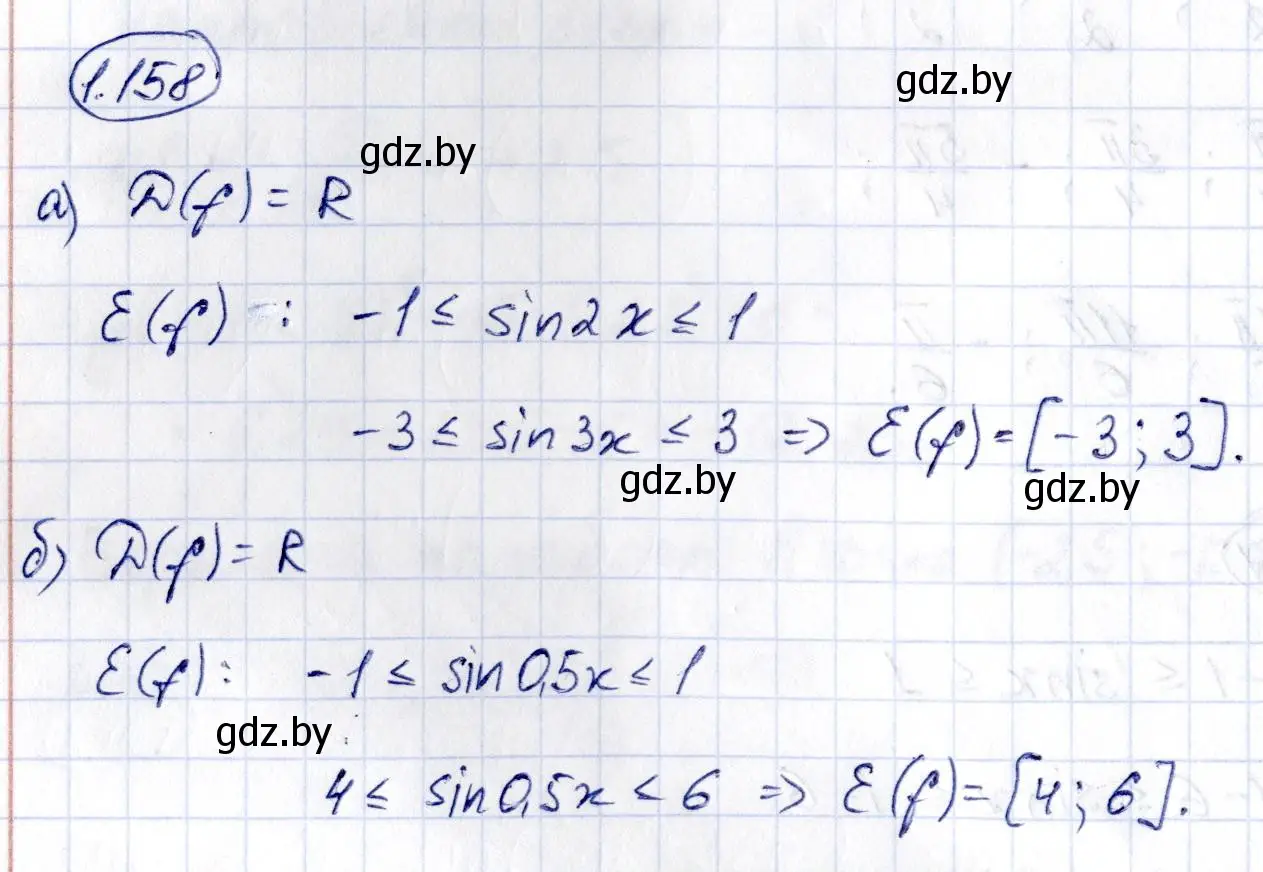 1.158
gdz.by
gdz.by
а) D(f) = R
E(f) : -1 ≤ sin2x ≤ 1
-3 ≤ sin3x ≤ 3 => E(f) = [-3; 3].
gdz.by
gdz.by
б) D(f) = R
E(f): -1 ≤ sin0,5x ≤ 1
gdz.by
4 ≤ sin0,5x < 6 => E(f) = [4; 6].